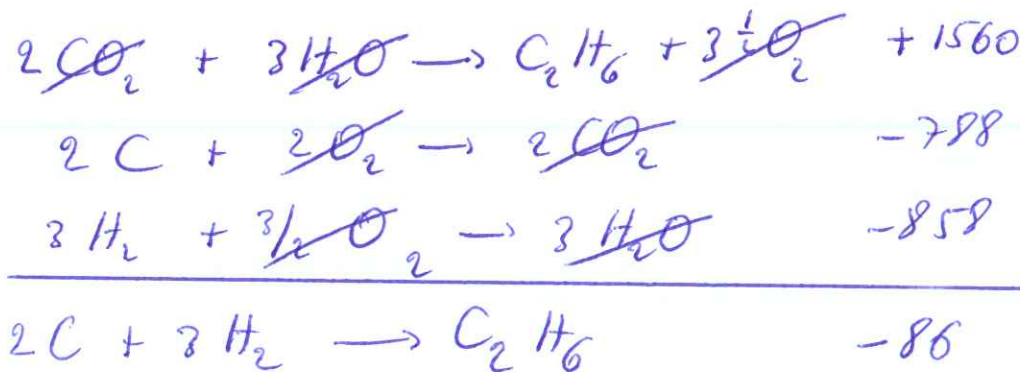 2CO₂ + 3H₂O → C₂H₆ + 3½O₂ +1560
2C + 2O₂ → 2CO₂ -788
3H₂ + 3/2O₂ → 3H₂O -858
2C + 3H₂ → C₂H₆ -86